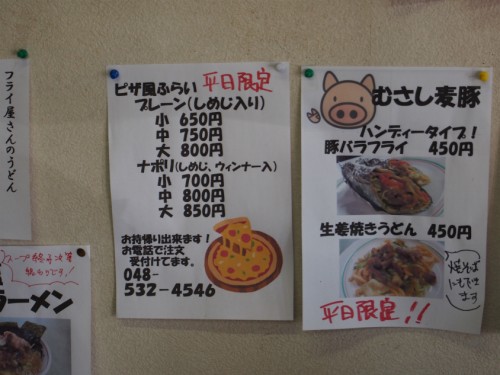 フライ屋さんのうどん
スープ終了次第
終わりです!
ラーメン
ピザ風ふらい 平日限定
プレーン(しめじ入り)
小 650円
中 750円
大 800円
ナポリ(しめじ、ウィンナー入)
小 700円
中 800円
大 850円
お持帰り出来ます!
お電話で注文
受付けてます。
048-
532-4546
むさし麦豚
ハンディータイプ!
豚バラフライ 450円
生姜焼きうどん 450円
焼そば
にもできます
平日限定!!